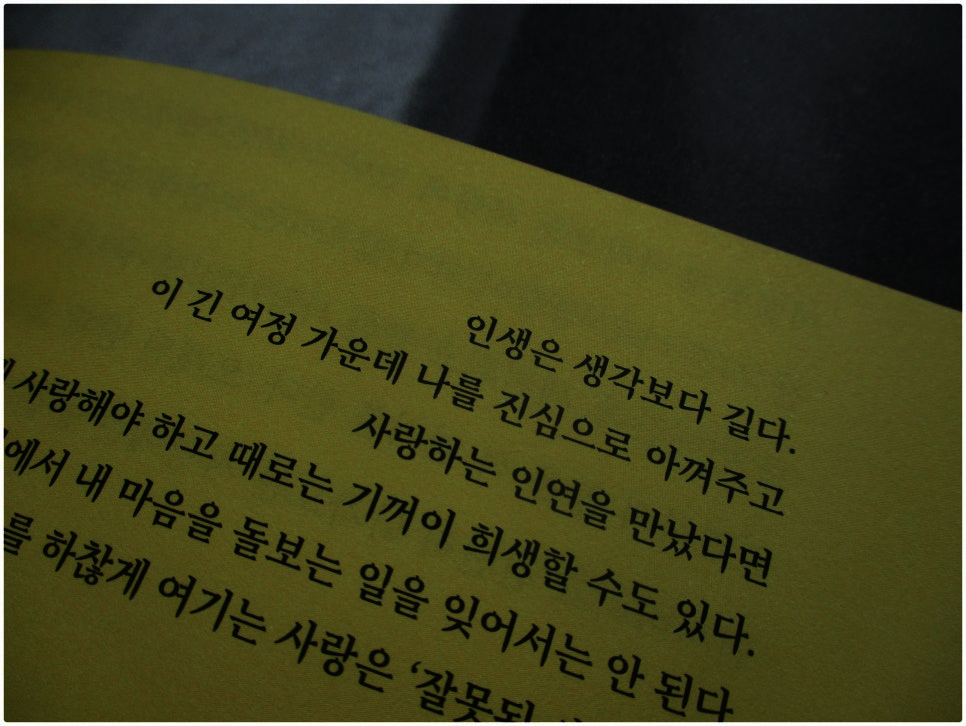 인생은 생각보다 길다.
이 긴 여정 가운데 나를 진심으로 아껴주고
사랑하는 인연을 만났다면
사랑해야 하고 때로는 기꺼이 희생할 수도 있다.
내 마음을 돌보는 일을 잊어서는 안 된다
하찮게 여기는 사랑은 ‘잘못된